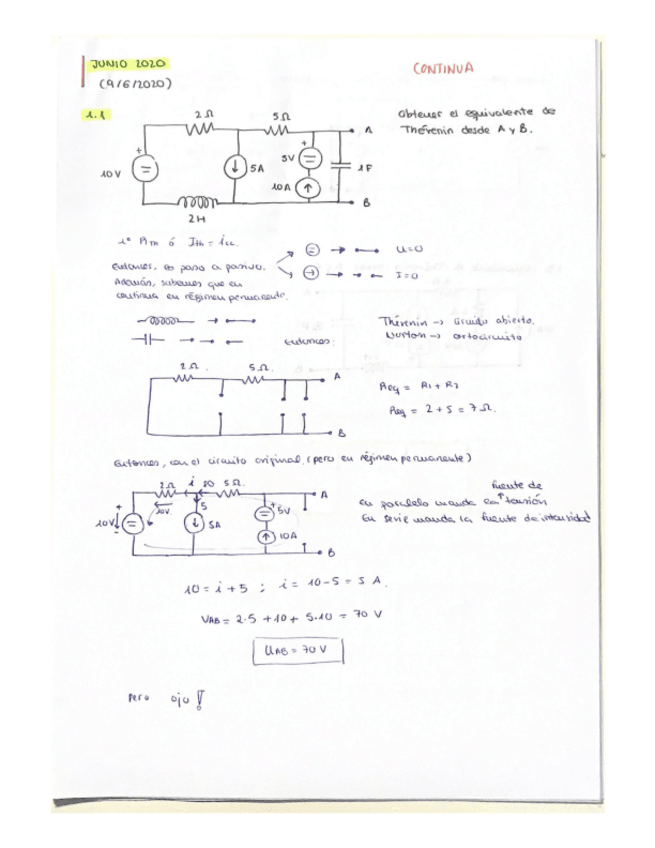 JUNIO 2020
CONTINUA
(9/6/2020)
1.1
2Ω 5Ω A
Obtener el equivalente de
Thévenin desde A y B.
+ +
10V = 5A 5V = 1F
10A
B
2H
1º Rth ó Ith = icc.
= → U=0
Entonces, se pasa a pasivo.
→ I=0
Además, sabemos que en
continua en régimen permanente.
Thévenin → circuito abierto.
Norton → cortocircuito
Entonces:
2Ω. 5Ω. A
Req = R1 + R2
Req = 2 + 5 = 7Ω.
B
Entonces, con el circuito original, (pero en régimen permanente)
2Ω i 10 5Ω. A
fuente de
En paralelo manda la tensión
En serie manda la fuente de intensidad
+ 10V 5 +
10V = 5A = 5V
10A
B
10 = i + 5 ; i = 10 - 5 = 5 A.
VAB = 2·5 + 10 + 5·10 = 70 V
UAB = 70 V
Pero ojo!